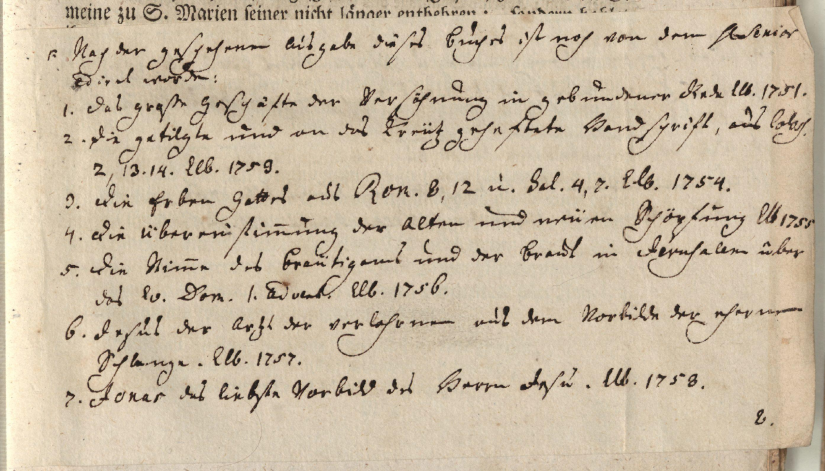 meine zu S. Marien seiner nicht länger entbehren
Nach der geschehenen Ausgabe dieses Buches ist noch von dem Senior
edirt worden:
1. Das große Geschäfte der Versöhnung in gebundener Rede Elb. 1751.
2. Die getilgte und an das Creutz geheftete Handschrift, aus Coloss.
2, 13.14. Elb. 1753.
3. Die Erben Gottes aus Rom. 8, 12 u. Gal. 4, 7. Elb. 1754.
4. Die übereinstimung der Alten und neüen Schöpfung Elb 1755
5. Die Stimme des Breütigams und der Braut in Jerusalem über
das Ev. Dom. 1. Advent. Elb. 1756.
6. Jesus der Arzt der verlohrnen aus dem Vorbilde der ehernen
Schlange. Elb. 1757.
7. Jonas das liebste Vorbild des Herrn Jesu. Elb. 1758.
8.